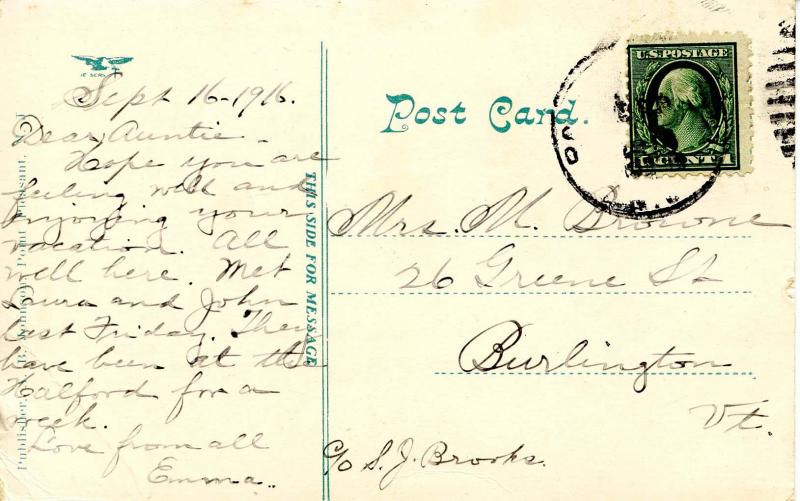 Sept 16-1916.
Dear Auntie -
Hope you are
feeling well and
enjoying your
vacation. All
well here. Met
Laura and John
last Friday. They
have been at the
Halford for a
week.
Love from all
Emma..
THIS SIDE FOR MESSAGE
Post Card.
U.S. POSTAGE
1 CENT 1
Mrs. M. Browne
26 Greene St
Burlington
Vt.
c/o S. J. Brooks.
Publisher, Johnson, Point Pleasant,